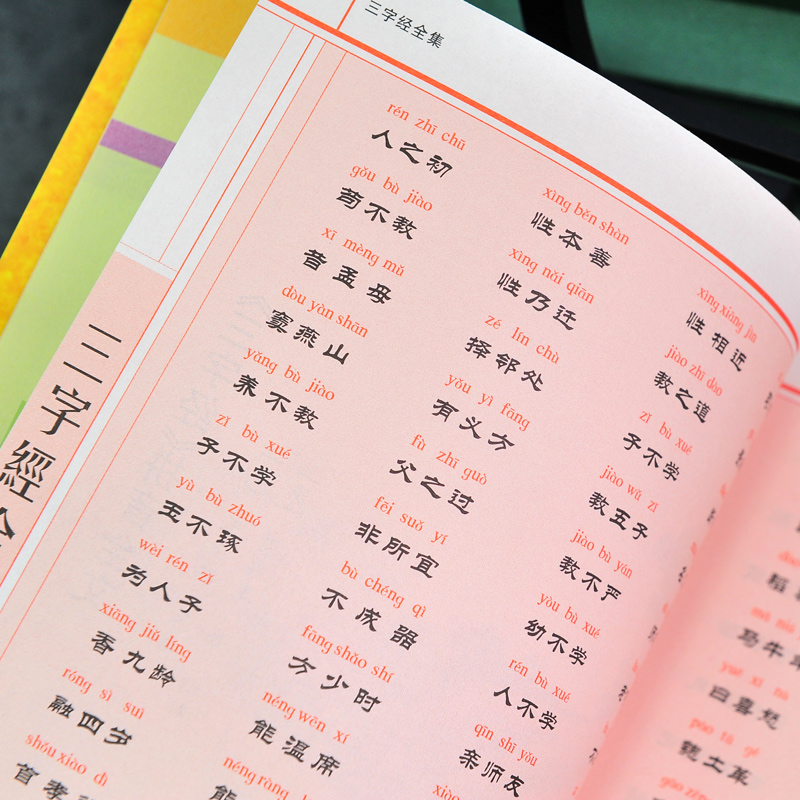 三字经全集
三字經
rén zhī chū xìng běn shàn xìng xiāng jìn
人之初 性本善 性相近
gǒu bù jiào xìng nǎi qiān jiào zhī dào
苟不教 性乃迁 教之道
xī mèng mǔ zé lín chù zǐ bù xué
昔孟母 择邻处 子不学
dòu yàn shān yǒu yì fāng jiào wǔ zǐ
窦燕山 有义方 教五子
yǎng bù jiào fù zhī guò jiào bù yán
养不教 父之过 教不严
zǐ bù xué fēi suǒ yí yòu bù xué
子不学 非所宜 幼不学
yù bù zhuó bù chéng qì rén bù xué
玉不琢 不成器 人不学
wèi rén zǐ fāng shǎo shí qīn shī yǒu
为人子 方少时 亲师友
xiāng jiǔ líng néng wēn xí xiào
香九龄 能温席
róng sì suì néng ràng
融四岁 能
shǒu xiào dì
首孝
稻
马牛
yuē xǐ nù
曰喜怒
páo tǔ gé
匏土革